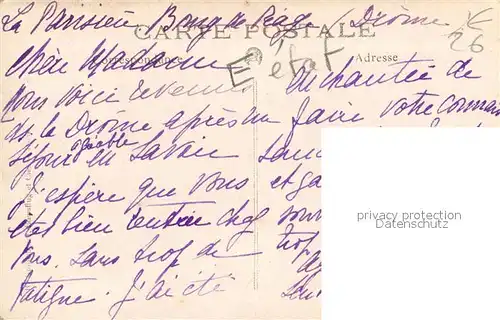 La Parisière Bourg de Péage (Drôme)
CARTE POSTALE
Correspondance
Adresse
E état
26
Chère Madame
Nous voici revenus
ds. la Drôme après un
séjour agréable en Savoie
J'espère que vous
êtes bien rentrée chez
vous. Sans trop de
fatigue. J'ai été
enchantée de
faire votre connais
et ga
trop
privacy protection
Datenschutz